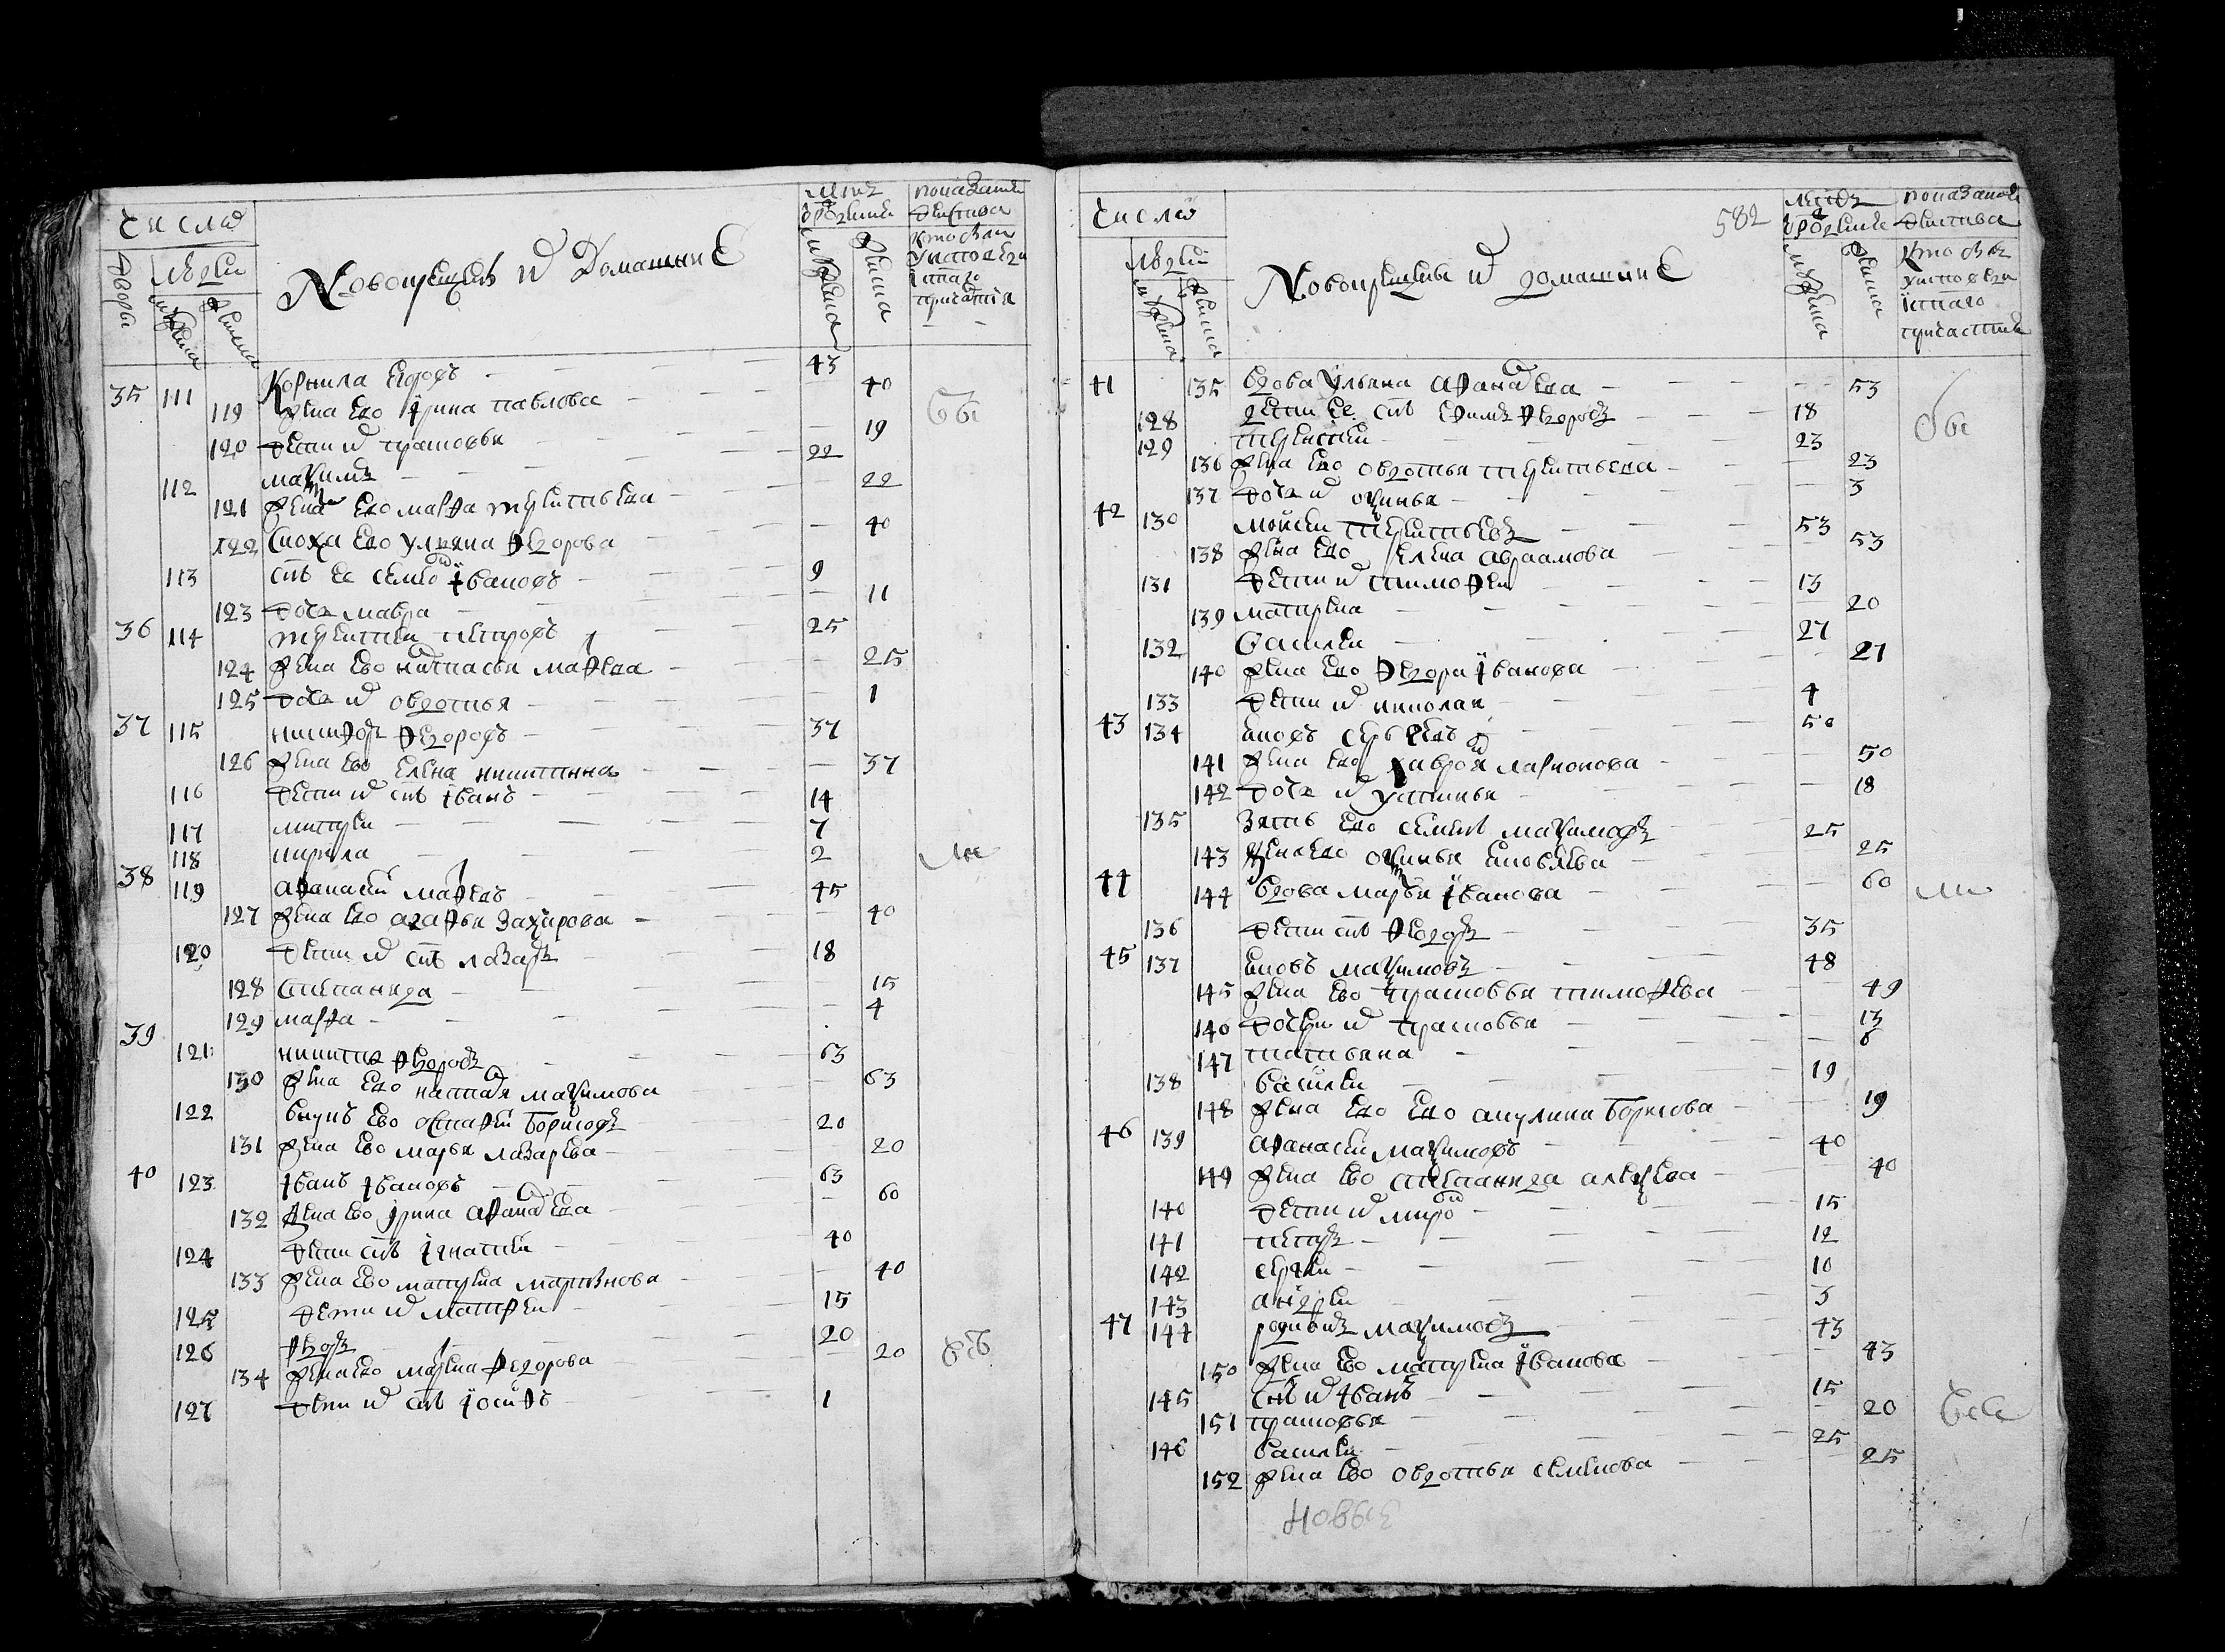 Числа
Дворы
Людей
Мужеска
Женска
Новокрещены и домашние
Летъ
от рождения
Мужеска
Женска
показание
действа
кто был
у исповеди
и святаго
причастия
35 111 Корнила Егоровъ 43
119 жена ево Ирина Павлова 40
120 дети их Прасковья 19
112 Максимъ 22
121 жена ево Марфа Терентьева 22
122 сноха ево Ульяна Федорова 40
113 сынъ ее Семион Ивановъ 9
123 дочь Мавра 11
36 114 Терентей Петровъ 25
124 жена ево Настасья Мафеева 25
125 дочь их Овдотья 1
37 115 Никифоръ Федоровъ 37
126 жена ево Елена Никитина 37
116 дети их сынъ Иванъ 14
117 Митрей 7
118 Кирила 2
38 119 Афанасей Мафеевъ 45
127 жена ево Агафья Захарова 40
120 дети их сынъ Лазарь 18
128 Степанида 15
129 Марфа 4
39
121 Никита Федоровъ 63
130 жена ево Настасья Максимова 63
122 внукъ ево Остафей Борисовъ 20
131 жена ево Марья Лазарева 20
40 123 Иванъ Ивановъ 63
132 жена ево Ирина Афанасева 60
124 дети сынъ Игнатей 40
133 жена ево Матрена Мартинова 40
125 дети их Матфей 15
126 Федоръ 20
134 жена ево Марина Федорова 20
127 дети их сынъ Иосифъ 1
582
Числа
Людей
Мужеска
Женска
Новокрещены и домашние
Летъ
от рождения
Мужеска
Женска
показание
действа
кто былъ
у исповеди
и святаго
причастия
41 135 вдова Ульяна Афанасева 53
128 дети ее сынъ Ефимъ Федоровъ 18
129 Терентей 23
136 жена ево Овдотья Терентьева 23
137 дочь их Оксинья 3
42 130 Моисей Терентьевъ 53
138 жена ево Елена Авраамова 53
131 дети их Тимофей 13
139 Матрена 20
132 Василей 27
140 жена ево Федора Иванова 27
133 дети их Николай 4
43 134 Яковъ Сергеевъ 50
141 жена ево Хавронья Ларионова 50
142 дочь их Устинья 18
135 зять ево Семенъ Максимовъ 25
143 жена ево Оксинья Яковлева 25
44 144 вдова Марья Иванова 60
136 дети сынъ Федоръ 35
45 137 Яковъ Максимовъ 48
145 жена ево Прасковья Тимофеева 49
146 дочери их Прасковья 13
147 Татьяна 6
138 Василей 19
148 жена ево ево Акулина Борисова 19
46 139 Афанасей Максимовъ 40
149 жена ево Степанида Алексеева 40
140 дети их Мирон 15
141 Петръ 12
142 Сергей 10
143 Андрей 5
47 144 Родионъ Максимовъ 43
150 жена ево Матрена Иванова 43
145 сынъ их Иванъ 15
151 Прасковья 20
146 Василей 25
152 жена ево Овдотья Семенова 25